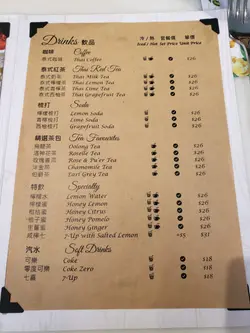 Drinks 飲品 冷 / 熱 套餐價 單價
Iced / Hot Set Price Unit Price
咖啡 Coffee
泰式咖啡 Thai Coffee $26
泰式紅茶 Thai Red Tea
泰式奶茶 Thai Milk Tea $26
泰式檸茶 Thai Lemon Tea $26
泰式青檸茶 Thai Lime Tea $26
泰式西柚茶 Thai Grapefruit Tea $26
梳打 Soda
檸檬梳打 Lemon Soda $26
青檸梳打 Lime Soda $26
西柚梳打 Grapefruit Soda $26
精選茶包 Tea Favourites
烏龍茶 Oolong Tea $26
洛神花茶 Roselle Tea $26
玫瑰普洱 Rose & Pu'er Tea $26
洋甘菊茶 Chamomile Tea $26
伯爵茶 Earl Grey Tea $26
特飲 Specialty
檸檬水 Lemon Water $26
檸檬蜜 Honey Lemon $26
柑桔蜜 Honey Citrus $26
柚子蜜 Honey Pomelo $26
薑蜜 Honey Ginger $26
咸檸七 7-Up with Salted Lemon +$5 $31
汽水 Soft Drinks
可樂 Coke $18
零度可樂 Coke Zero $18
七喜 7-Up $18